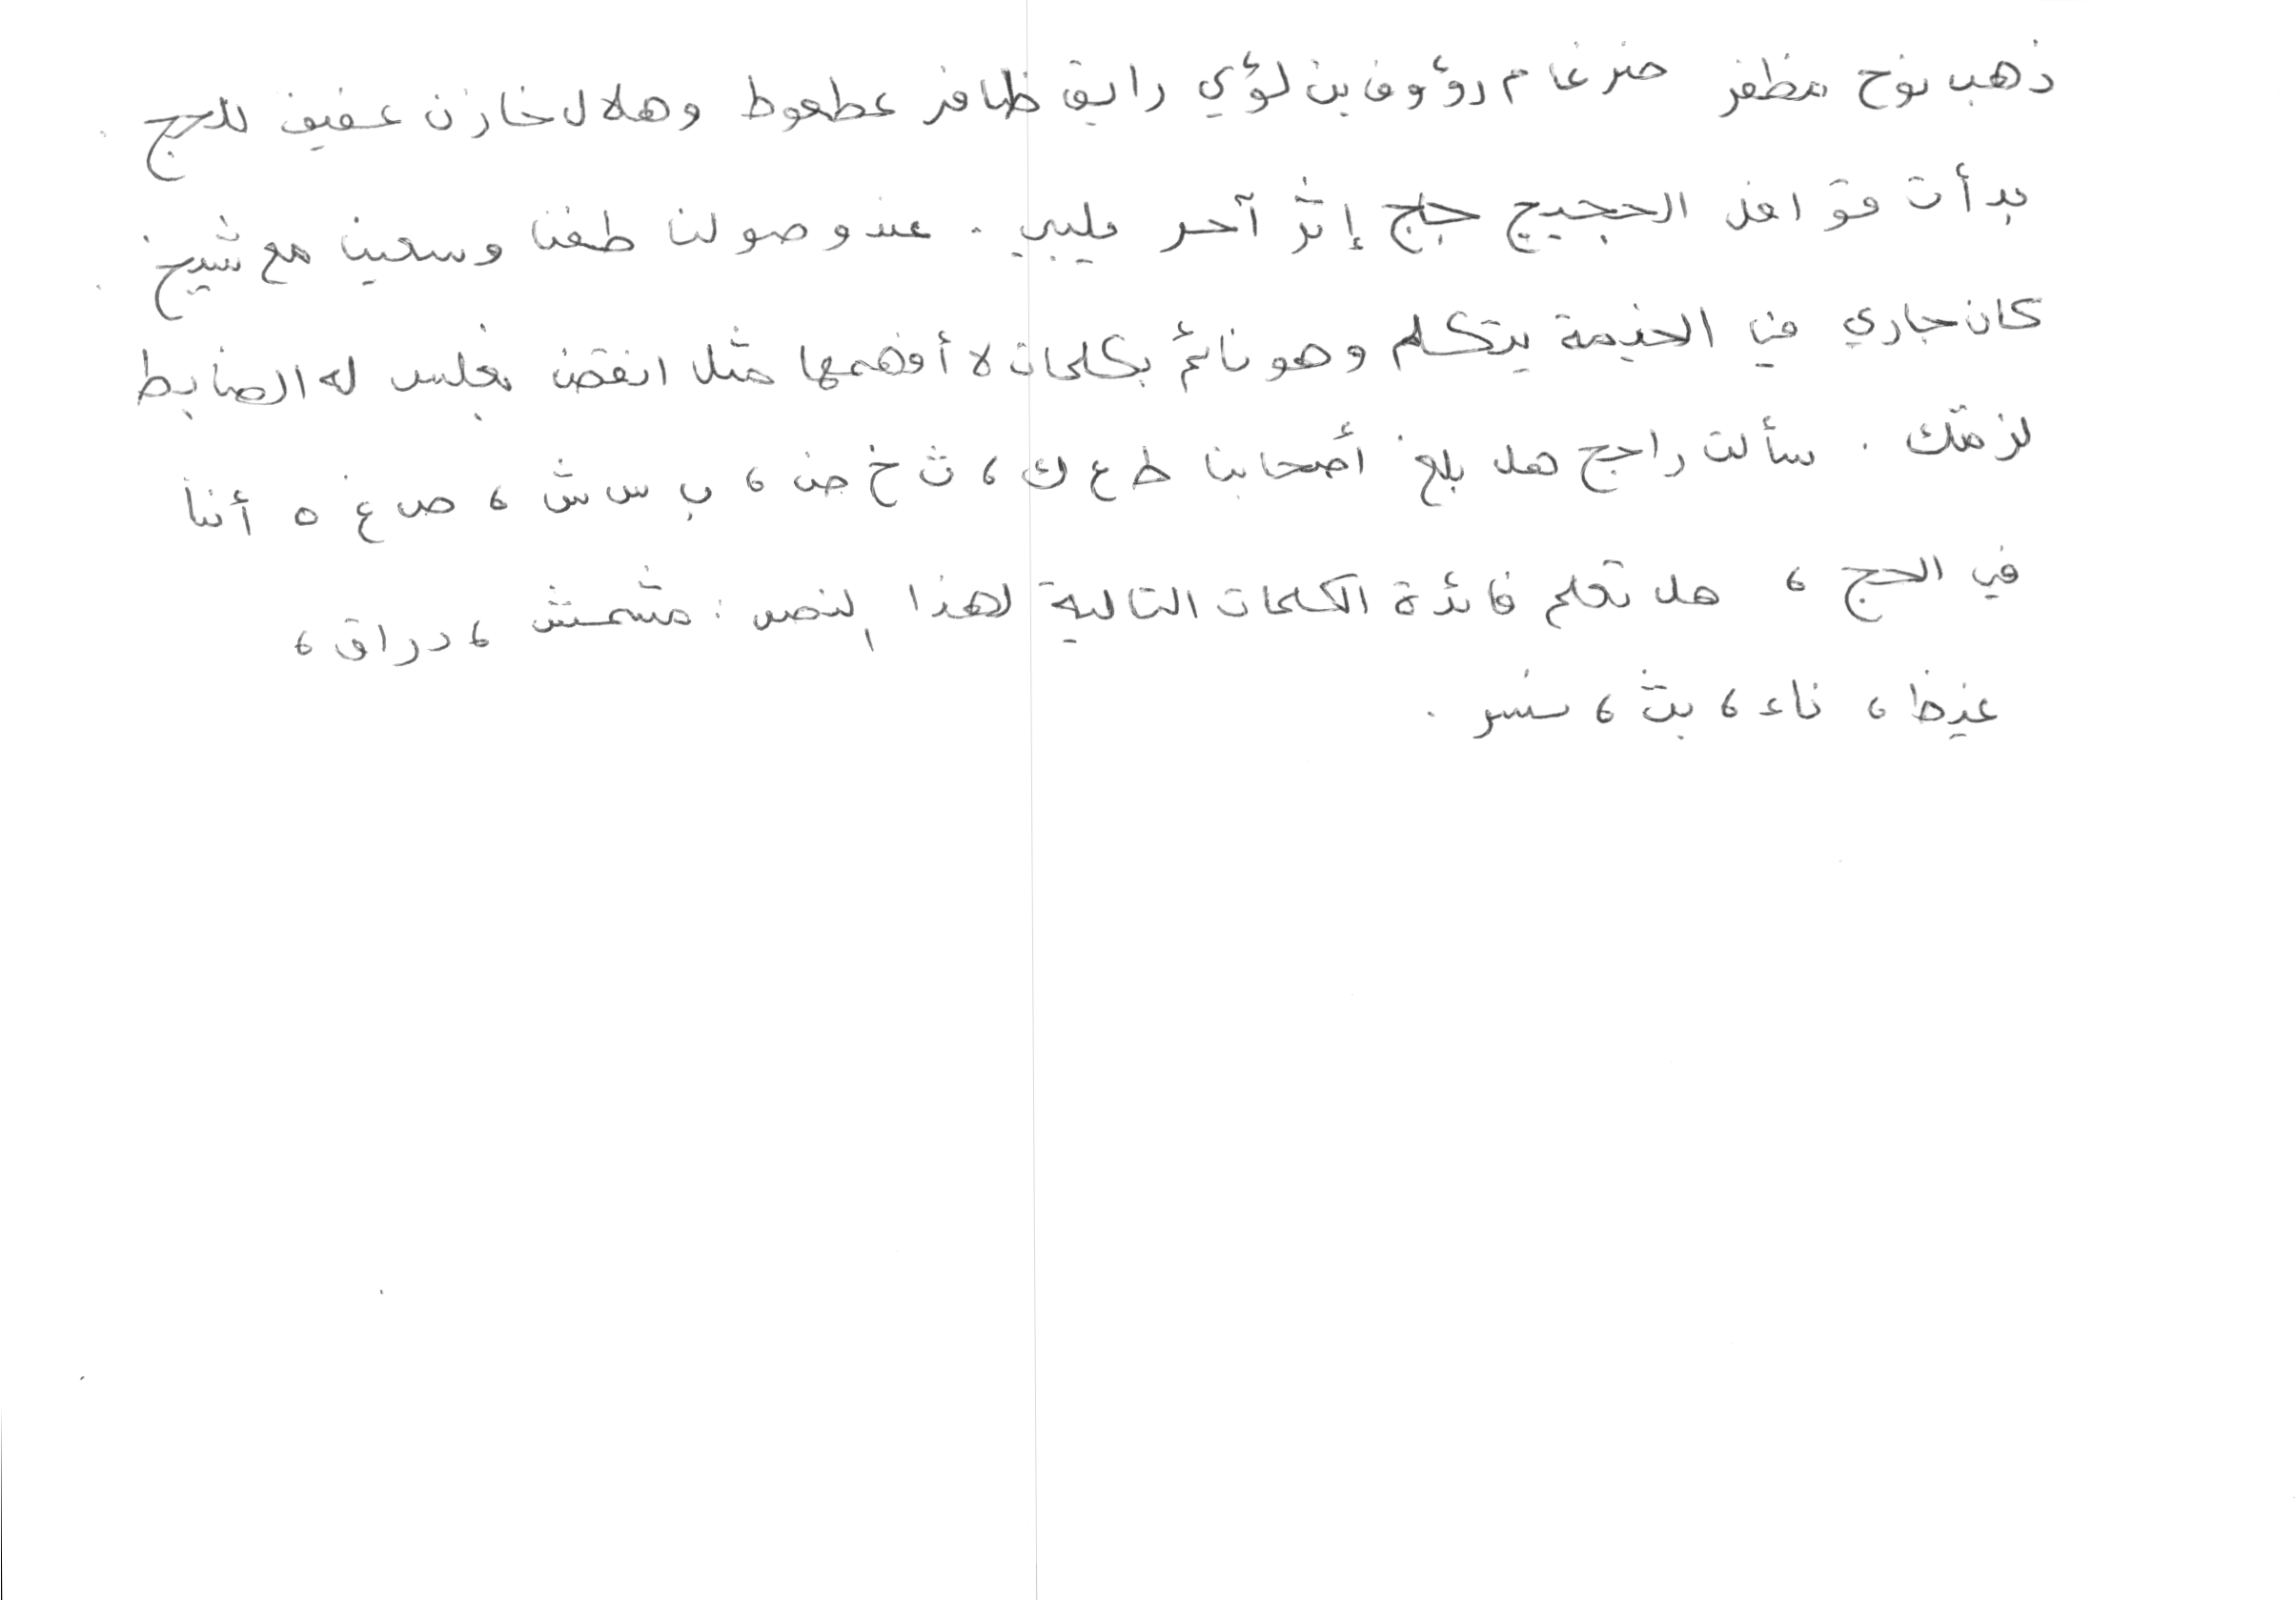 ذهب نوح مظفر ضرغام رؤوف بن لؤي رايق ظافر عطعوط وهلال خازن عفيف للحج .
بدأت قوافل الحجيج حاج إثر آخر يلبي . عند وصولنا طفنا وسعينا مع شيخ .
كان جاري في الخيمة يتكلم وهو نائم بكلمات لا أفهمها مثل انقض بغلس له الضابط
لزمتك . سألت راجح هل بلغ أصحابنا ط ع ك ، ث خ ض ، ب س ش ، ص غ ه أننا
في الحج ، هل تعلم فائدة الكلمات التالية لهذا النص : مشمش ، دراق ،
غيظ ، ناء ، بث ، نسر .